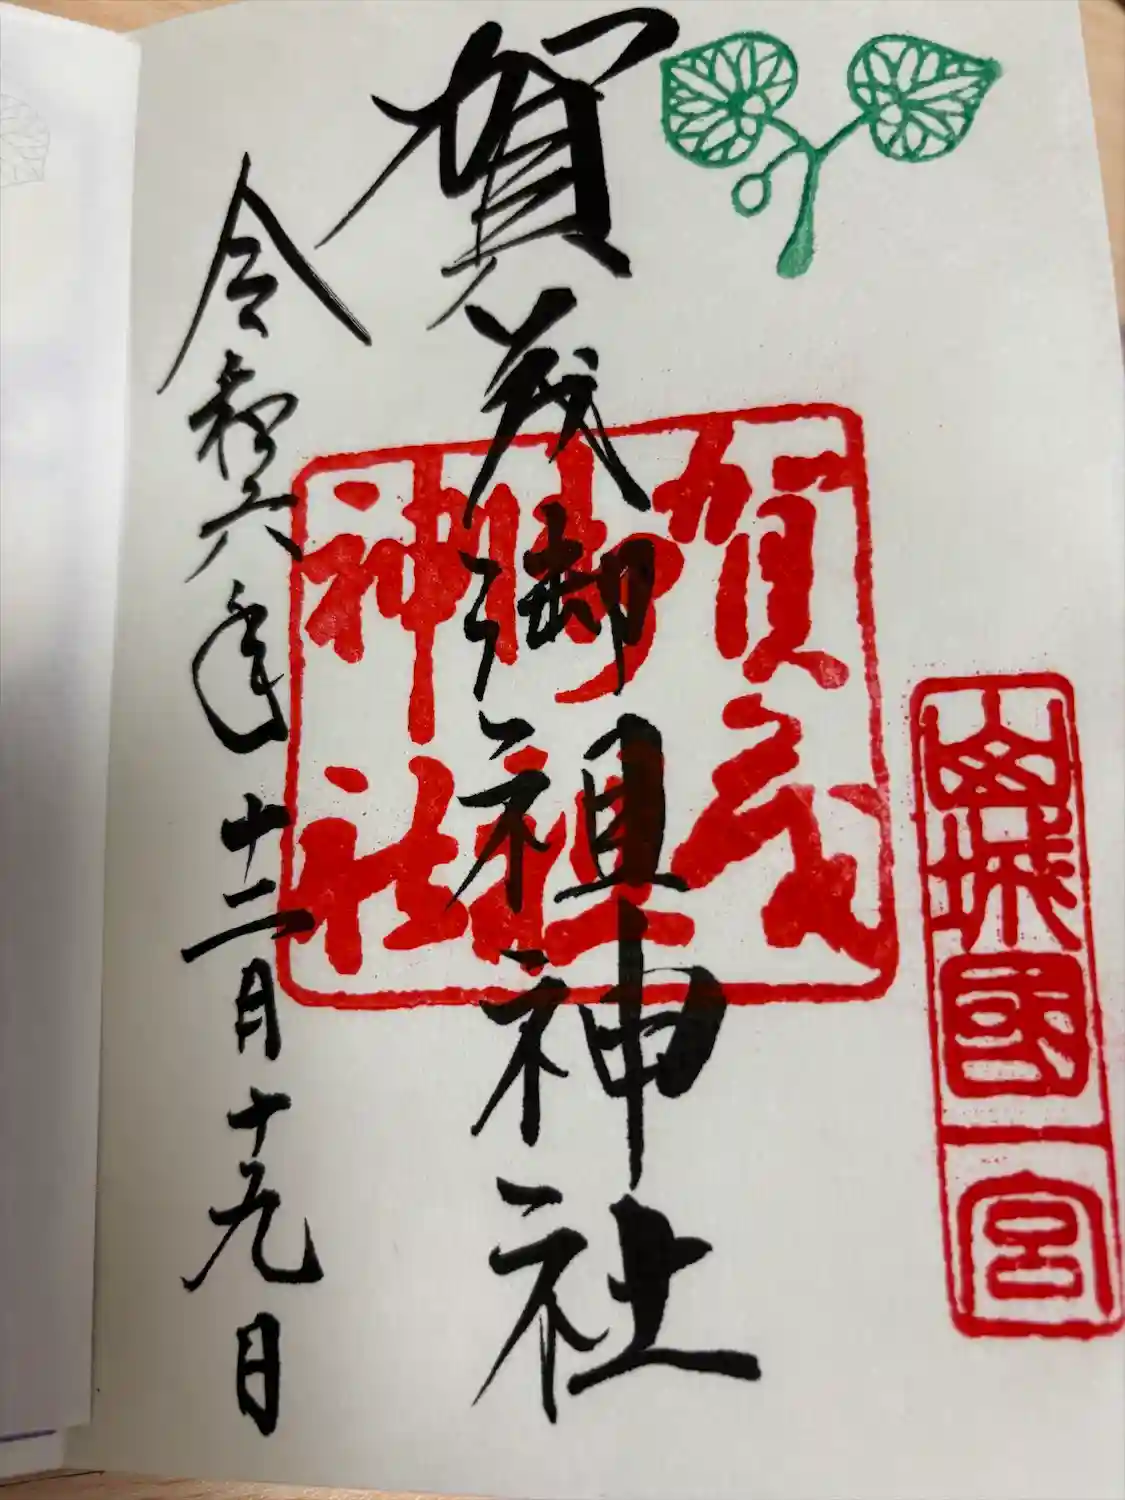 山城國一宮
賀茂御祖神社
賀茂
御祖
神社
令和六年十二月十九日